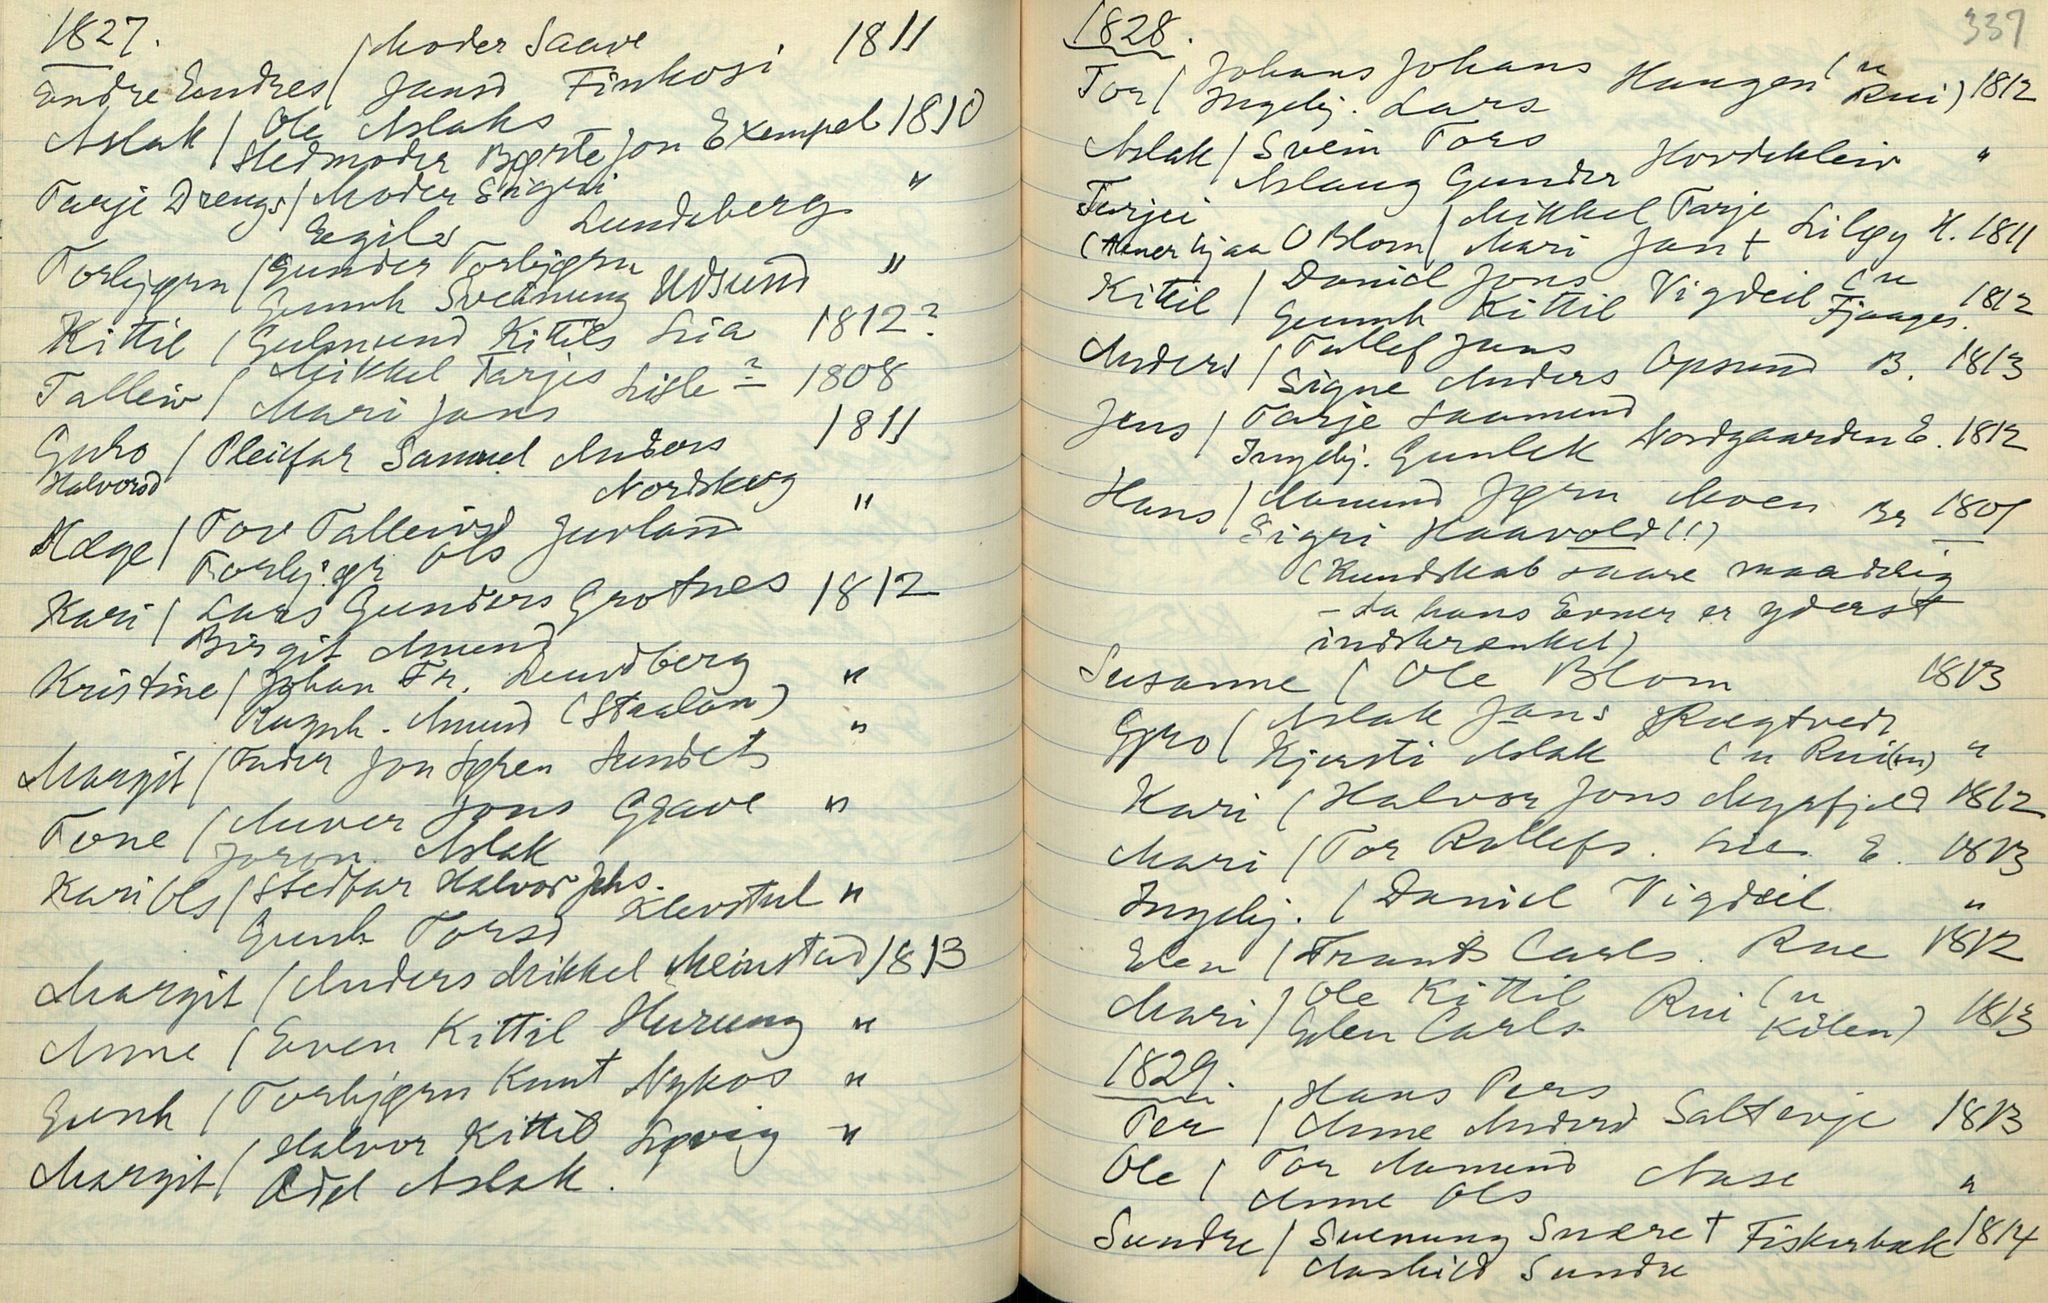 1827.
Endre Endres / Moder Saave 1811
Jansd Finkosi
Aslak / Ole Aslaks
Stedmoder Børte Jon Exempel 1810
Tarje Drengs / Moder Sigri "
Egils Lundsberg
Torbjørn / Gunder Torbjørn "
Gunh Svenung Udsund
Kittil / Gulmund Kittils Lia 1812?
Talleiv / Mikkel Tarjes Lisle? 1808
Mari Jans
Guro / Pleifar Samuel Anders 1811
Halvorsd Nordskog
Hæge / Tov Talleivsd Jurland "
Torbjør Ols
Kari / Lars Gunders Grotnes 1812
Birgit Amund
Kristine / Johan Fr. Lundberg "
Ragnh. Amund (Staalan) "
Margit / Fader Jon Jøren Sundets
Tone / Anver Jons Grave "
Joron Aslak
Kari Ols / Stedfar Halvor Johs.
Gunh Torsd Klevstul "
Margit / Anders Mikkel Meinstad 1813
Anne / Even Kittil Hurung "
Gunh / Torbjørn Knut Nykos "
Margit / Halvor Kittil Liøvig "
Adel Aslak.
337
1828.
Tor / Johans Johans Haugen ( n
Ingebj. Lars Rui) 1812
Aslak / Svein Tors Hovdekleiv "
Aslaug Gunder
Tarjei / Mikkel Tarje Liløy H. 1811
( hjaa O Blom / Mari Jan +
Kittil / Daniel Jons Vigdeil ( n 1812
Gunh Kittil Fjaages.
Anders / Tallef Jens Opsund B. 1813
Signe Anders
Jens / Tarje Aamund Nordgaarden E. 1812
Ingebj. Gunlek
Hans / Aamund Jørn Moen Br 1807
Sigri Haavold (!)
(Kundskab saare maadelig
– da hans Evner er yderst
indskrænket)
Susanne / Ole Blom 1813
Gro / Aslak Jans Rægtvedt
Kjersti Aslak ( n Rui(en) "
Kari / Halvor Jons Myrfjeld 1812
Mari / Tor Rollefs. Lie E. 1813
Ingebj. / Daniel Vigdeil "
Elen / Frants Carls. Rue 1812
Mari / Ole Kittil Rui ( n 1813
Elen Carls Kilen)
1829.
Per / Hans Pers
Anne Andersd Saltevje 1813
Ole / Tor Aamund Aase "
Anne Ols
Sundre / Svenung Snære + Fiskerbæk 1814
Aashild Sundre